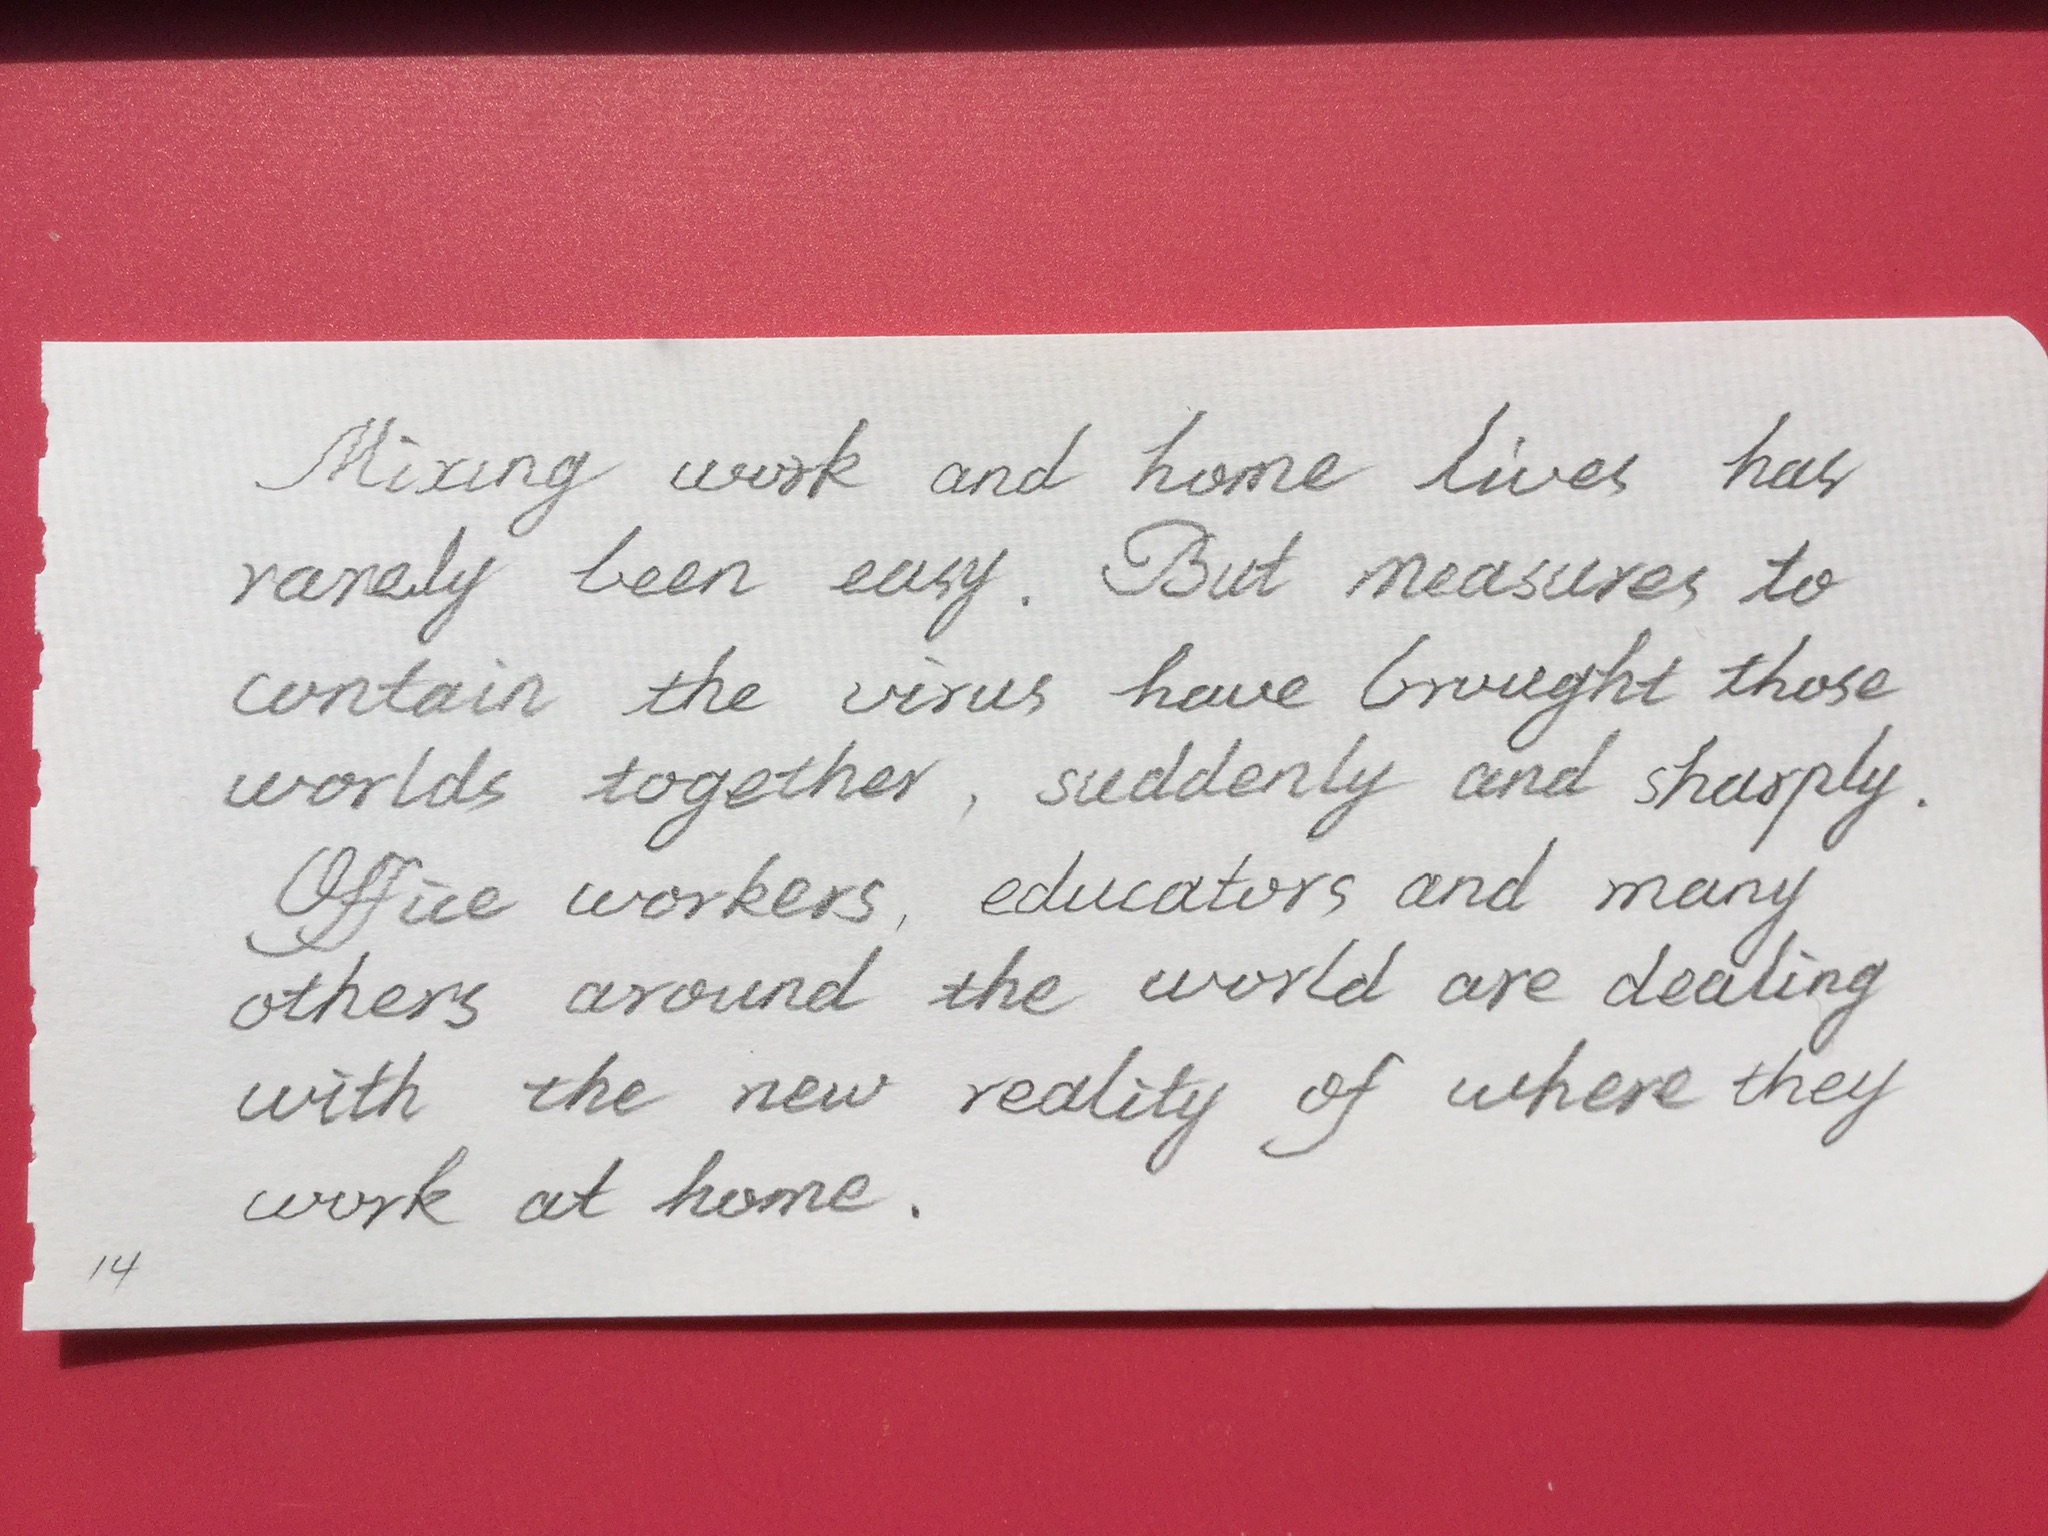 Mixing work and home lives has
rarely been easy. But measures to
contain the virus have brought those
worlds together, suddenly and sharply.
Office workers, educators and many
others around the world are dealing
with the new reality of where they
work at home.
14